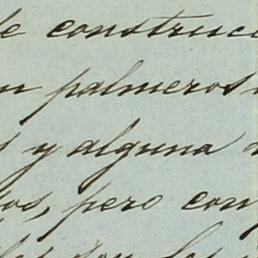 de construcc
n palmeros
s y alguna
os, pero con